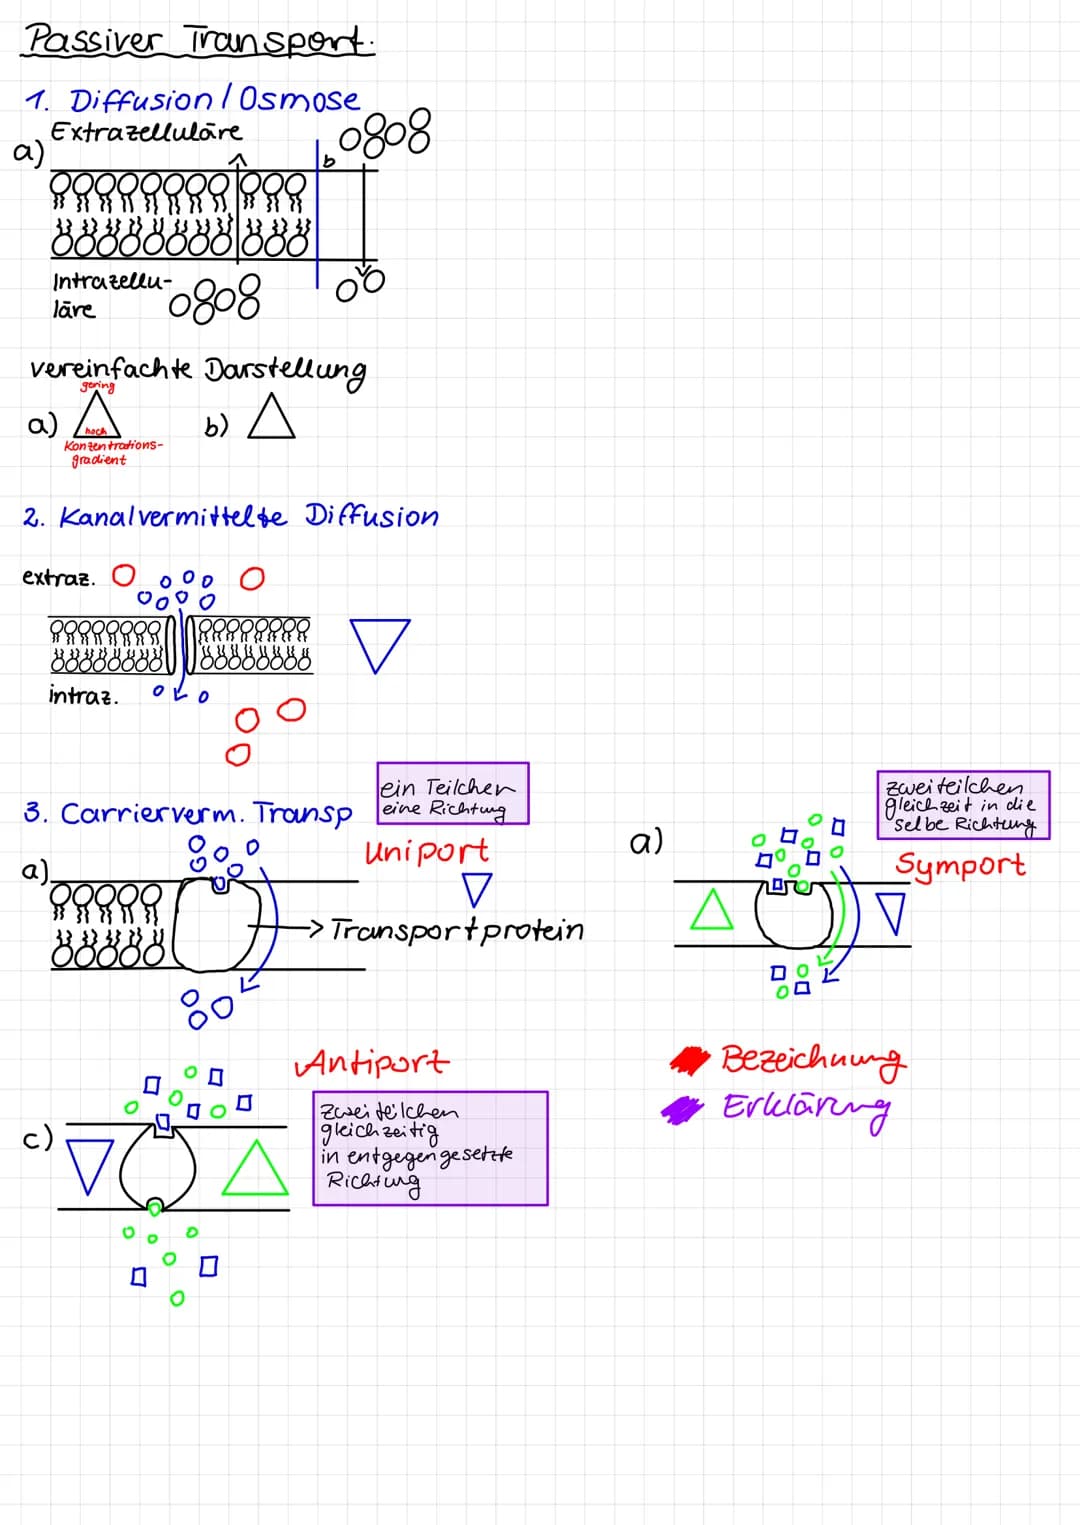 Passiver Transport.
1. Diffusion / Osmose
Extrazelluläre
a)
b
Intrazellu-
läre
vereinfachte Darstellung
gering
a)
b)
hoch
Konzentrations-
gradient
2. Kanalvermittelte Diffusion
extraz.
intraz.
ein Teilchen
eine Richtung
3. Carrierverm. Transp
a)
Uniport
Transportprotein
zwei teilchen
gleichzeit in die
selbe Richtung
a)
Symport
Antiport
Zwei teilchen
gleichzeitig
in entgegengesetzte
Richtung
c)
Bezeichnung
Erklärung